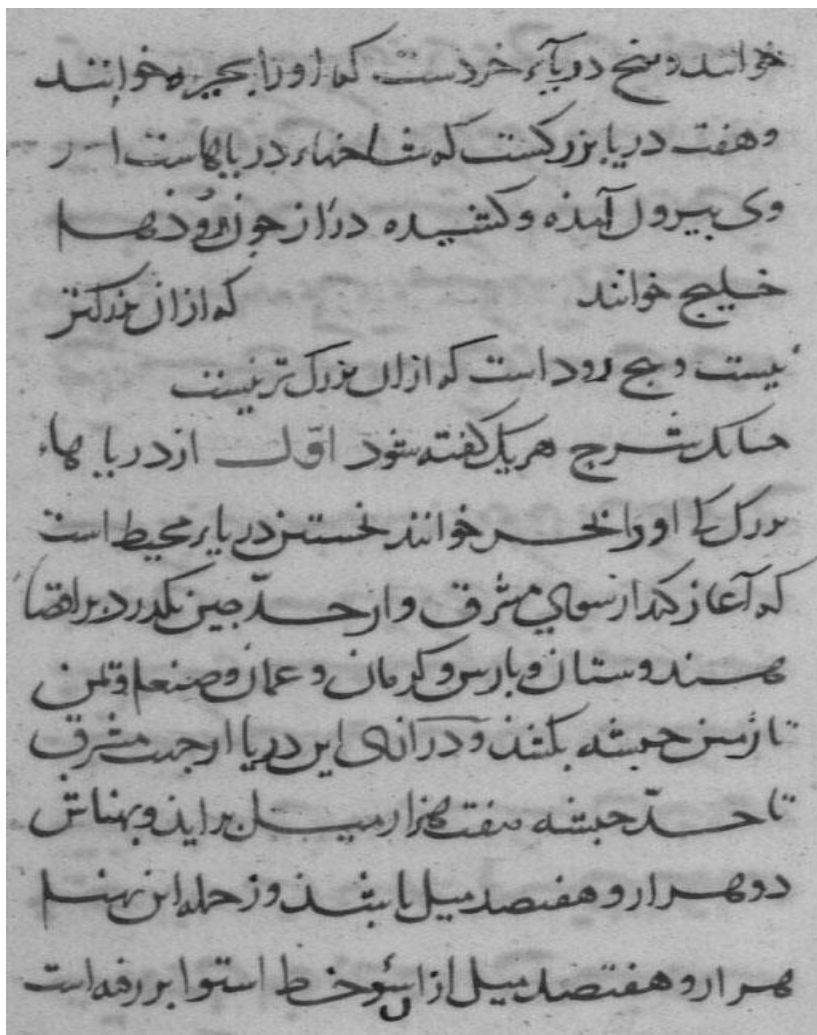 خوانند و پنج دریاء خردست که او را بحیره خوانند
و هفت دریا بزرکست که شاخهاء دریاهاست از
وی بیرون آمذه و کشیده دراز جون روذها
خلیج خوانند که ازان بزرکتر
نیست و پنج رود است که ازان بزرک تر نیست
جنانک شرح هریک کفته شود اوّل از دریاهاء
بزرک که او را بحر خوانند نخستین دریاء محیط است
که آغاز کند از سوی مشرق و از حدّ جین بکذرد بر اقصاء
هندوستان و پارس و کرمان و عمان و صنعا و یمن
تا زمین حبشه بکشذ و درازای این دریا از جهت مشرق
تا حدّ حبشه هفت هزار میل براید و پهناش
دو هزار و هفتصد میل باشذ و ز جمله این پهنا
هزار و هفتصد میل ازان سو خط استوا بر رفته است